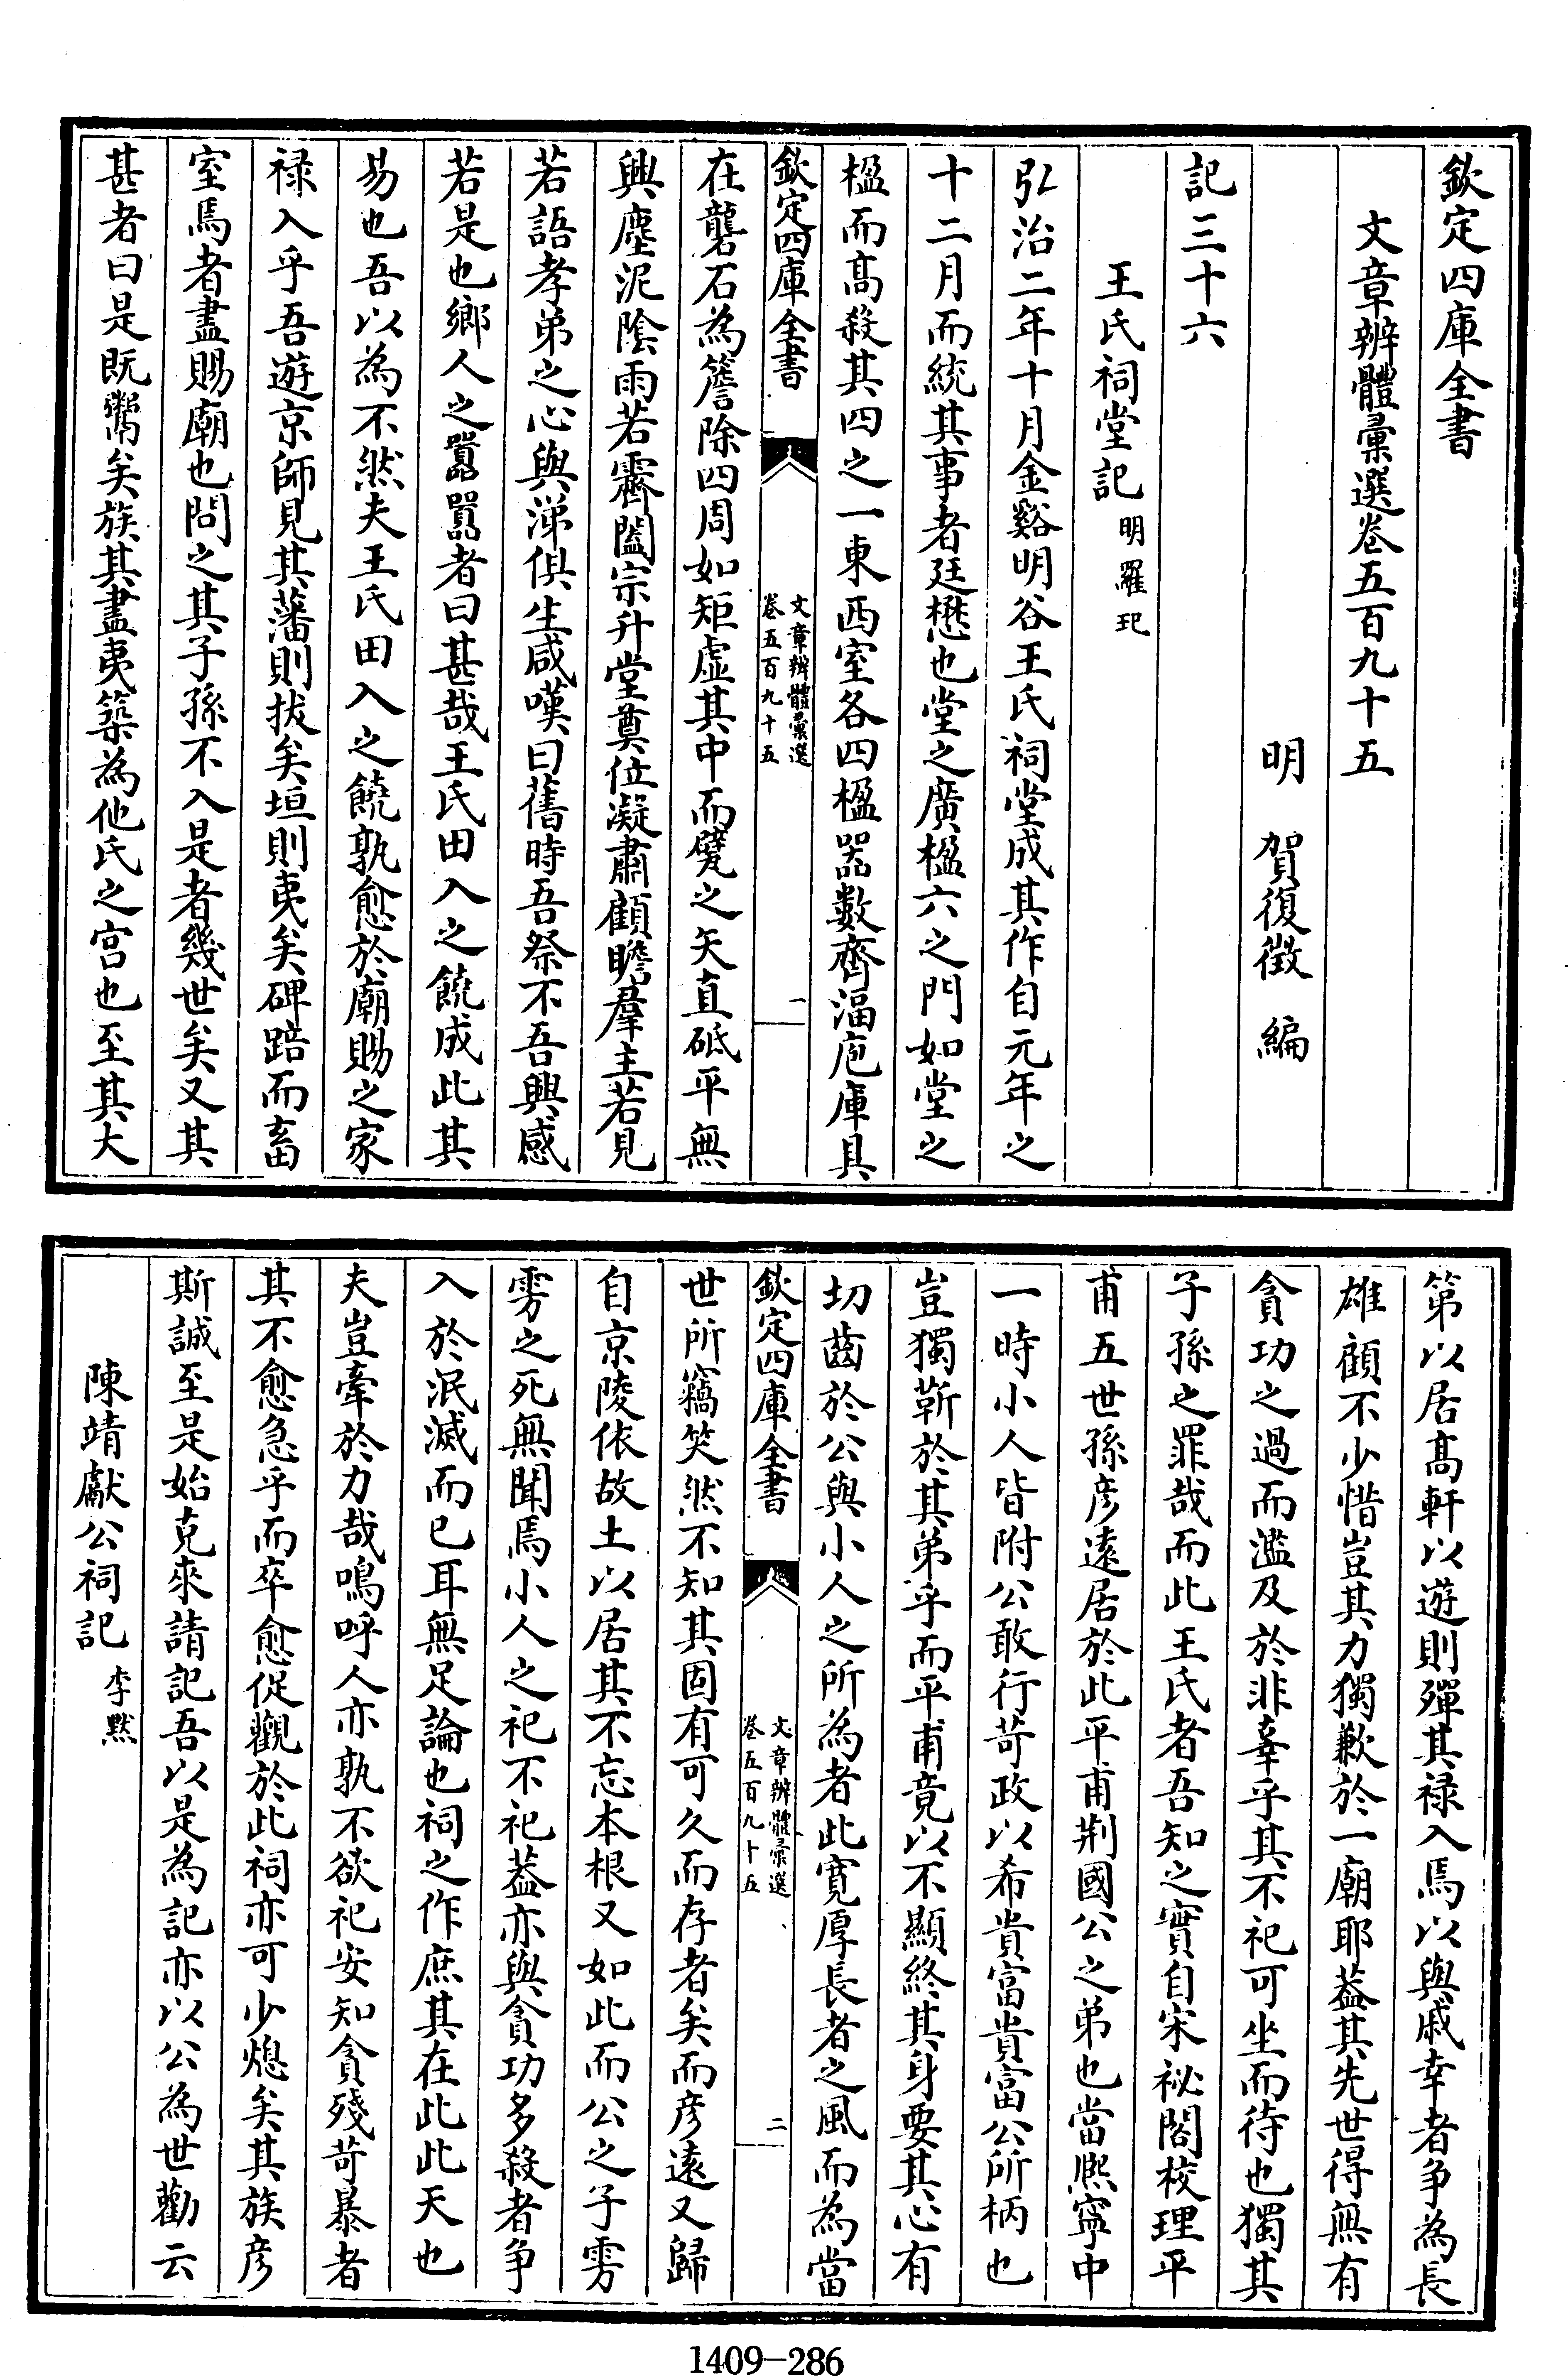 欽定四庫全書
文章辨體彚選卷五百九十五
明 賀復徵 編
記三十六
王氏祠堂記 明羅玘
弘治二年十月金谿明谷王氏祠堂成其作自元年之
十二月而統其事者廷懋也堂之廣楹六之門如堂之
楹而髙殺其四之一東西室各四楹器數齊湢庖庫具
欽定四庫全書
文章辨體彚選
卷五百九十五
一
在礱石為簷除四周如矩虚其中而甓之矢直砥平無
興塵泥陰雨若霽闔宗升堂奠位凝肅顧瞻羣主若見
若語孝弟之心與涕俱生咸嘆曰舊時吾祭不吾興感
若是也鄉人之囂囂者曰甚哉王氏田入之饒成此其
易也吾以為不然夫王氏田入之饒孰愈於廟賜之家
禄入乎吾遊京師見其藩則拔矣垣則夷矣碑踣而畜
室焉者盡賜廟也問之其子孫不入是者幾世矣又其
甚者曰是既鬻矣族其盡夷築為他氏之宫也至其大
第以居髙軒以遊則殫其禄入焉以與戚幸者争為長
雄顧不少惜豈其力獨歉於一廟耶葢其先世得無有
貪功之過而濫及於非辜乎其不祀可坐而待也獨其
子孫之罪哉而此王氏者吾知之實自宋祕閣校理平
甫五世孫彦遠居於此平甫荆國公之弟也當熈寧中
一時小人皆附公敢行苛政以希貴富貴富公所柄也
豈獨靳於其弟乎而平甫竟以不顯終其身要其心有
切齒於公與小人之所為者此寛厚長者之風而為當
欽定四庫全書
文章辨體彚選
卷五百九十五
二
世所竊笑然不知其固有可久而存者矣而彦遠又歸
自京陵依故土以居其不忘本根又如此而公之子雱
雱之死無聞焉小人之祀不祀葢亦與貪功多殺者争
入於泯滅而已耳無足論也祠之作庶其在此此天也
夫豈牽於力哉嗚呼人亦孰不欲祀安知貪殘苛暴者
其不愈急乎而卒愈促觀於此祠亦可少熄矣其族彦
斯誠至是始克來請記吾以是為記亦以公為世勸云
陳靖獻公祠記 李黙
1409-286